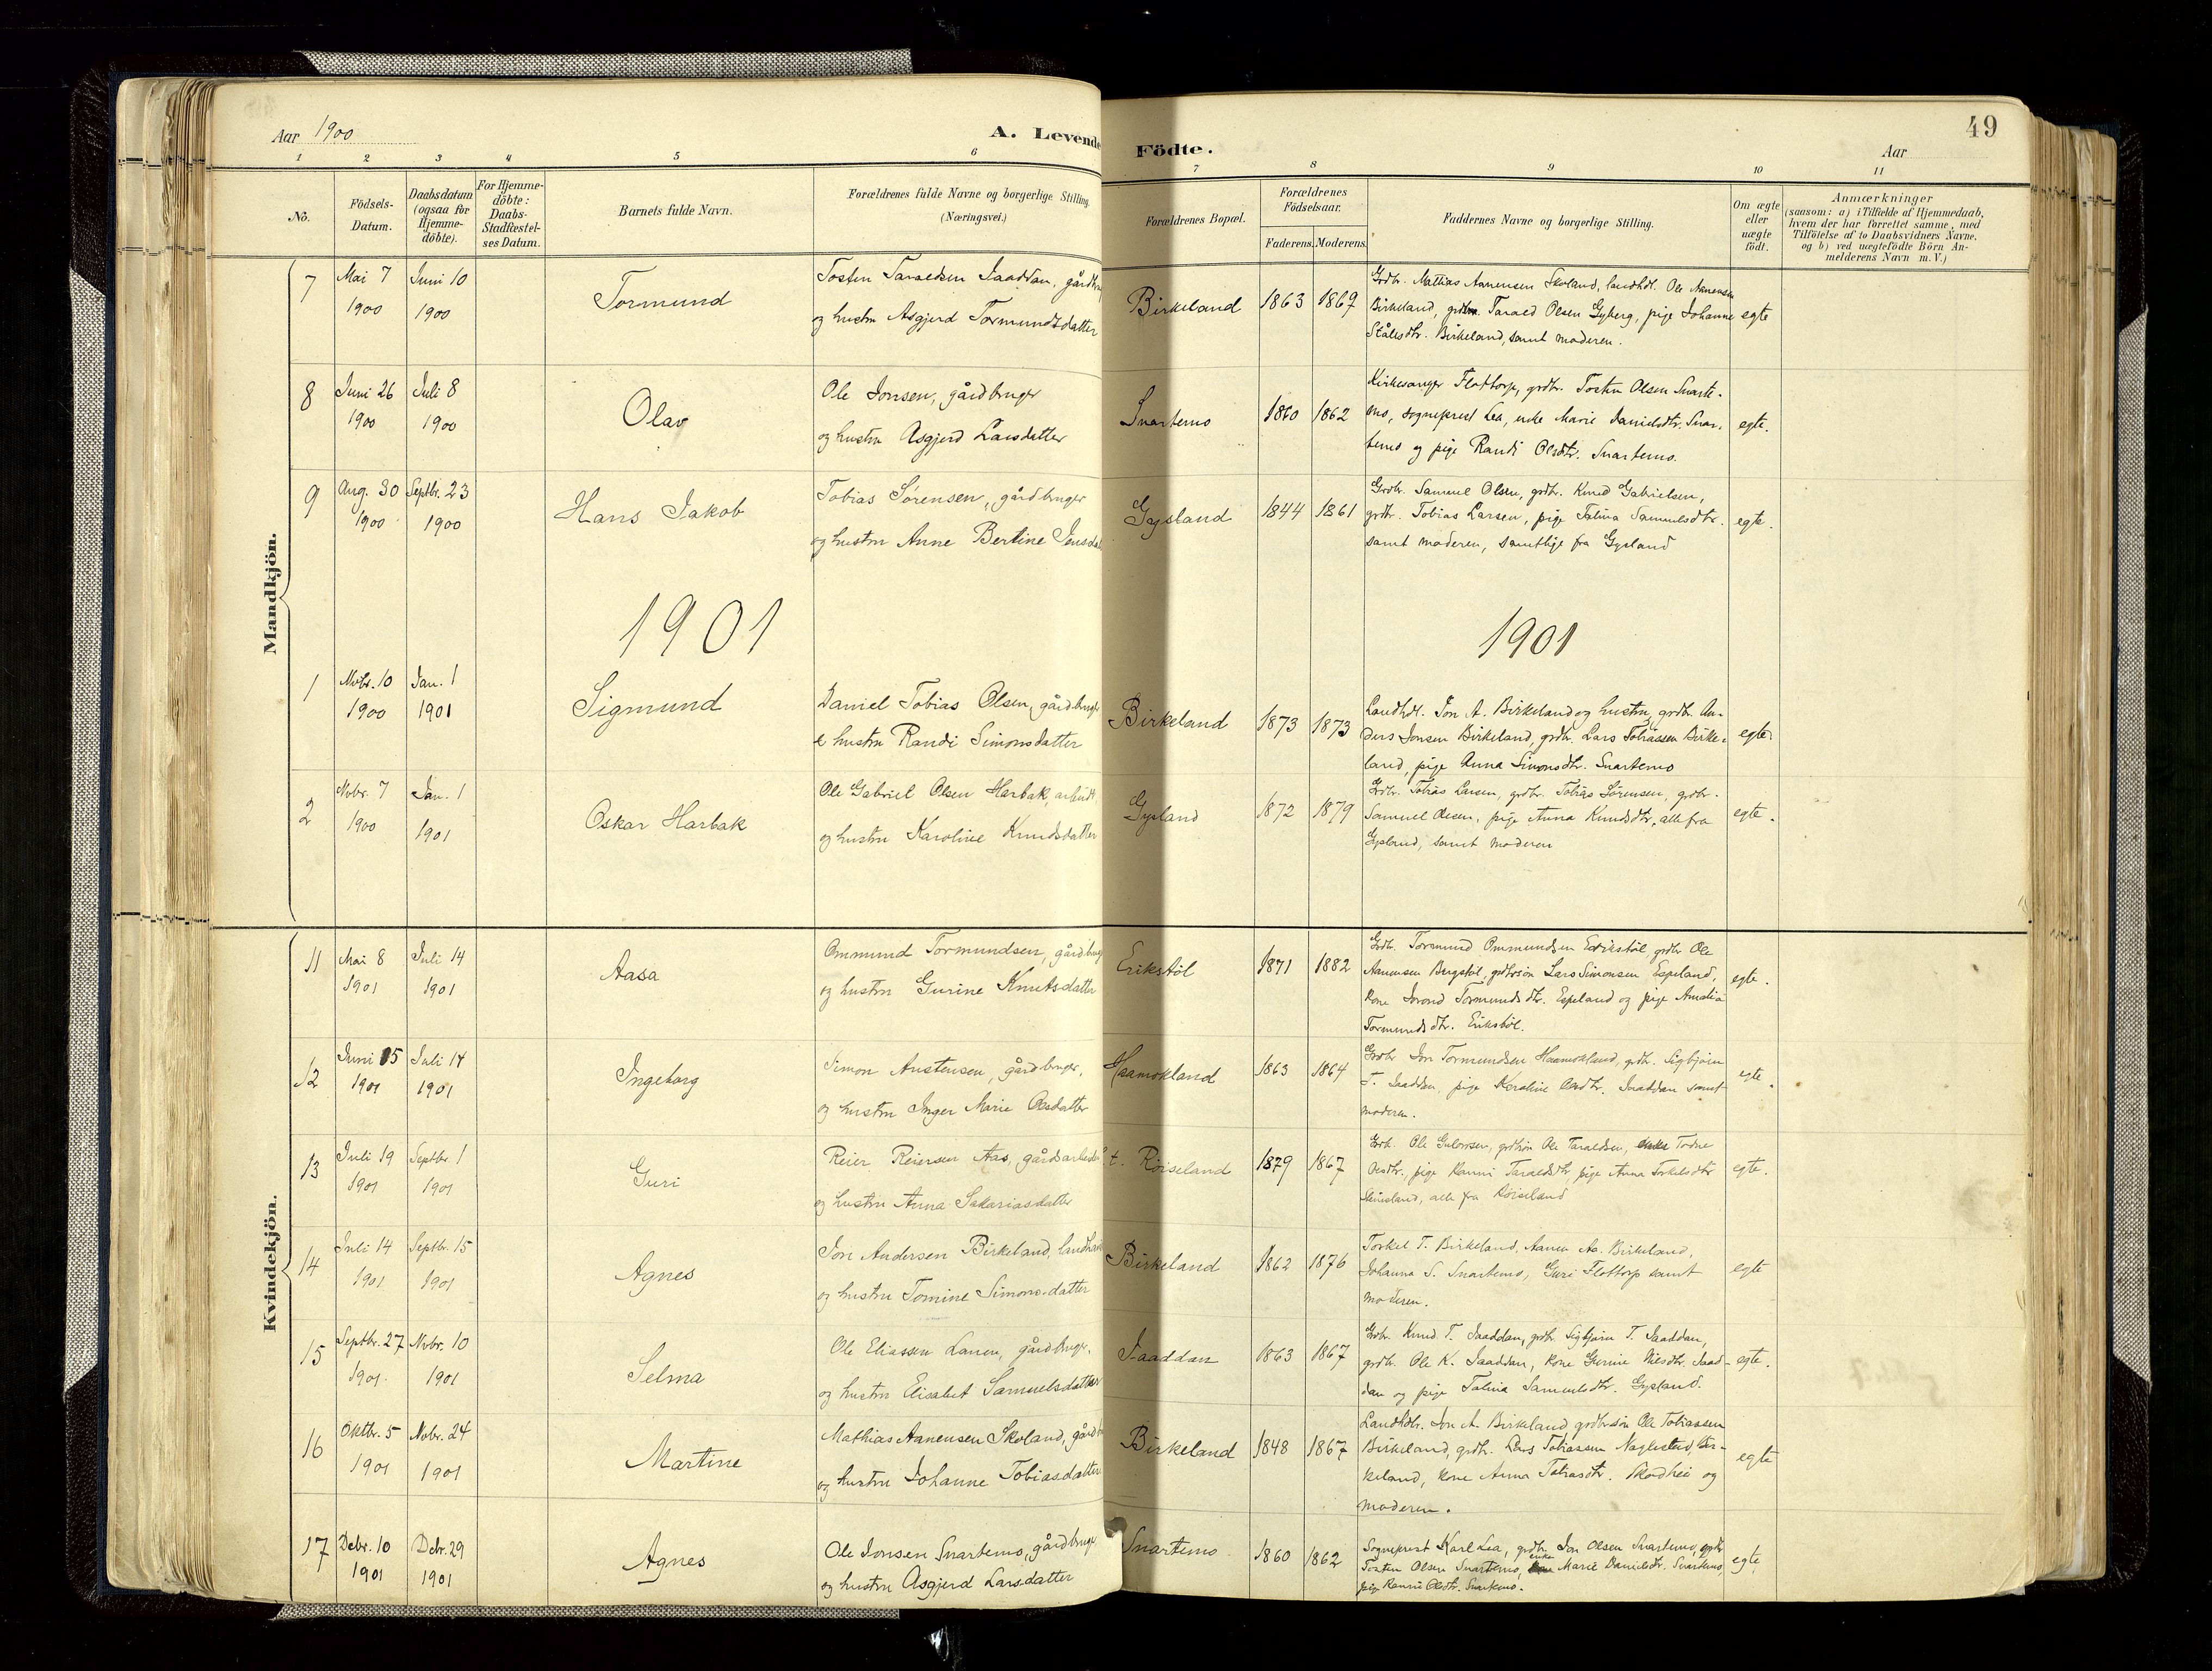 49
Aar 1900
A. Levende Födte.
Aar
1 2 3 4 5 6 7 8 9 10 11
No.
Födsels-
Datum.
Daabsdatum
(ogsaa for
Hjemme-
döbte).
For Hjemme-
döbte:
Daabs-
Stadfæstel-
ses Datum.
Barnets fulde Navn.
Forældrenes fulde Navne og borgerlige Stilling.
(Næringsvei.)
Forældrenes Bopæl.
Forældrenes
Födselsaar.
Faderens. Moderens.
Faddernes Navne og borgerlige Stilling.
Om ægte
eller
uægte
födt.
Anmærkninger
(saasom: a) i Tilfælde af Hjemmedaab,
hvem der har forrettet samme, med
Tilföielse af to Daabsvidners Navne,
og b) ved uægtefödte Börn An-
melderens Navn m. V.)
Mandkjön.
7
Mai 7
1900
Juni 10
1900
Tormund
Tosten Taraldsen Faaddan, gårdbru
og hustru Asgjerd Tormundsdatter
Birkeland
1863 1869
Grdbr. Mathias Aanensen Skoland, landhdl. Ole Aanensen
Birkeland, grdbr. Tarald Olsen Gyberg, pige Johanne
Ståles dtr. Birkeland, samt moderen.
egte
8
Juni 26
1900
Juli 8
1900
Olav
Ole Jonsen, gårdbruger
og hustru Asgjerd Larsdatter
Snartemo
1860 1862
Kirkesanger Flottorp, grdbr. Tosten Olsen Snarte-
mo, sogneprest Lea, enke Marie Danielsdtr. Snar-
temo og pige Randi Olsdtr. Snartemo.
egte.
9
Aug. 30
1900
Septbr. 23
1900
Hans Jakob
Tobias Sørensen, gårdbruger
og hustru Anne Bertine Jensda
Gysland
1844 1861
Grdbr. Samuel Olsen, grdbr. Knud Gabrielsen,
grdbr. Tobias Larsen, pige Talina Samuelsdtr.
samt moderen, samtlige fra Gysland
egte.
1901
1901
1
Novbr. 10
1900
Jan. 1
1901
Sigmund
Daniel Tobias Olsen, gårdbruge
& hustru Randi Simonsdatter
Birkeland
1873 1873
Landhdl. Jon A. Birkeland og hustru, grdbr. An-
ders Jonsen Birkeland, grdbr. Lars Tobiassen Birke-
land, pige Anna Simonsdtr. Snartemo
egte.
2
Novbr. 7
1900
Jan. 1
1901
Oskar Harbak
Ole Gabriel Olsen Harbak, arbeidr
og hustru Karoline Knudsdatter
Gysland
1872 1879
Grdbr. Tobias Larsen, grdbr. Tobias Sørensen, grdbr.
Samuel Olsen, pige Anna Knudsdtr. alle fra
Gysland, samt moderen
egte.
Kvindekjön.
11
Mai 8
1901
Juli 14
1901
Aasa
Ommund Tormundsen, gårdbrug
og hustru Gurine Knutsdatter
Erikstöl
1871 1882
Grdb. Tormund Ommundsen Erikstöl, grdbr Ole
Aanensen Bergstöl, grdbrsön Lars Simonsen Espeland,
kone Jorond Tormunds dtr. Espeland og pige Amalia
Tormunds dtr. Erikstöl.
egte.
12
Juni 15
1901
Juli 14
1901
Ingeborg
Simon Austensen, gårdbruger,
og hustru Inger Marie Olsdatter
Haamokland
1863 1864
Grdbr Jon Tormundsen Haamokland, grdbr. Sigbjørn
T. Faaddan, pige Karoline Olsdtr. Faaddan samt
moderen.
egte.
13
Juli 19
1901
Septbr. 1
1901
Guri
Reier Reiersen Aas, gårdsarbeider
og hustru Anna Sakariasdatter
Röiseland
1879 1867
Grdb. Ole Gulovsen, grdbrsön Ole Taraldsen, Todne
Olsdtr., pige Ranni Taraldsdtr, pige Anna Torkelsdtr
alle fra Röiseland
egte.
14
Juli 14
1901
Septbr. 15
1901
Agnes
Jon Andersen Birkeland, landha
og hustru Tomine Simonsdatter
Birkeland
1862 1876
Torkel T. Birkeland, Aanen Aa. Birkeland,
Johanna S. Snartemo, Guri Flottorp samt
moderen.
egte
15
Septbr. 27
1901.
Novbr. 10
1901
Selma
Ole Eliassen Lanen, gårdbruger,
og hustru Elisabet Samuelsdatter
Faaddan
1863 1867
Grdbr. Knud T. Faaddan, grdbr. Sigbjørn T. Faaddan,
grdbr. Ole K. Faaddan, kone Gurine Nilsdtr. Faad-
dan og pige Talina Samuelsdtr. Gysland.
egte.
16
Oktbr. 5
1901
Novbr. 24
1901
Martine
Mathias Aanensen Skoland, gårdbr
og hustru Johanne Tobiasdatter
Birkeland
1848 1867
Landhdlr. Jon A. Birkeland, grdbrsön Ole Tobiassen
Birkeland, grdbr. Lars Tobiassen Naglestad, Bir-
keland, kone Anna Tobiasdtr. og
moderen.
egte
17
Debr. 10
1901
Debr. 29
1901
Agnes
Ole Jonsen Snartemo, gårdbruge
og hustru Asgjerd Larsdatter
Snartemo
1860 1862
Sogneprest Karl Lea, grdbr. Jon Olsen Snartemo, grdbr
Tosten Olsen Snartemo, enke Marie Danielsdtr. Snartemo,
pige Ranni Olsdtr. Snartemo.
egte